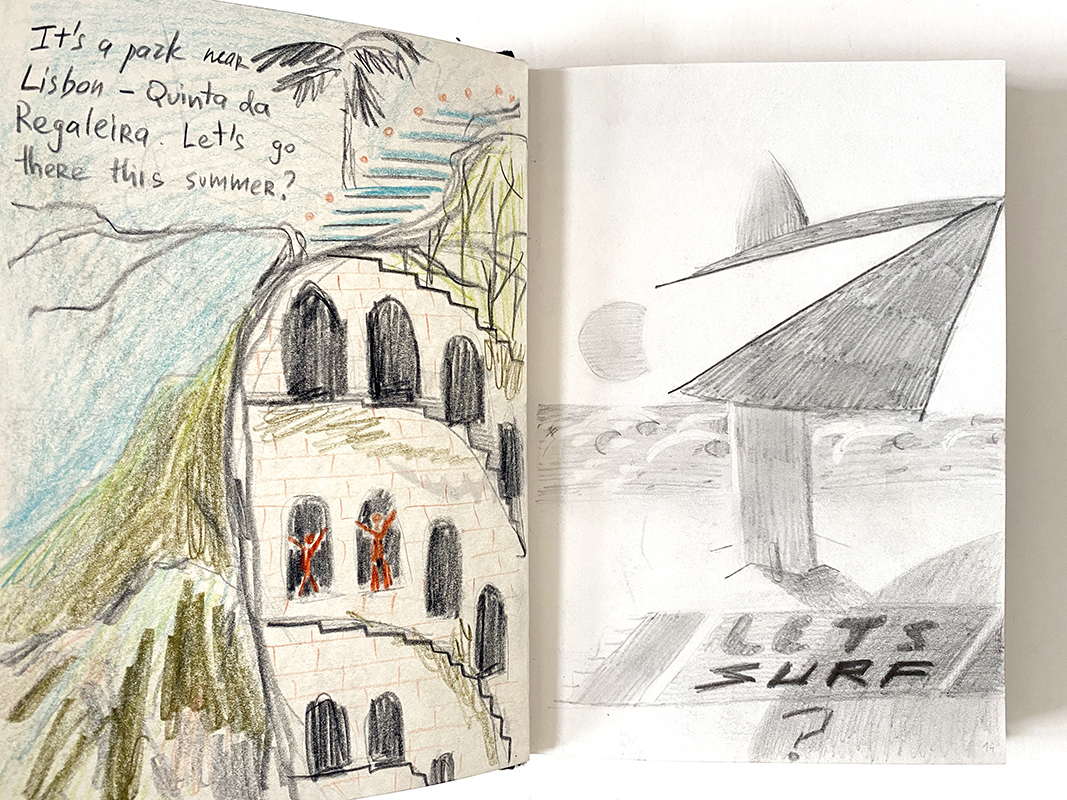 It's a park near
Lisbon – Quinta da
Regaleira. Let's go
there this summer?
LETS
SURF
?